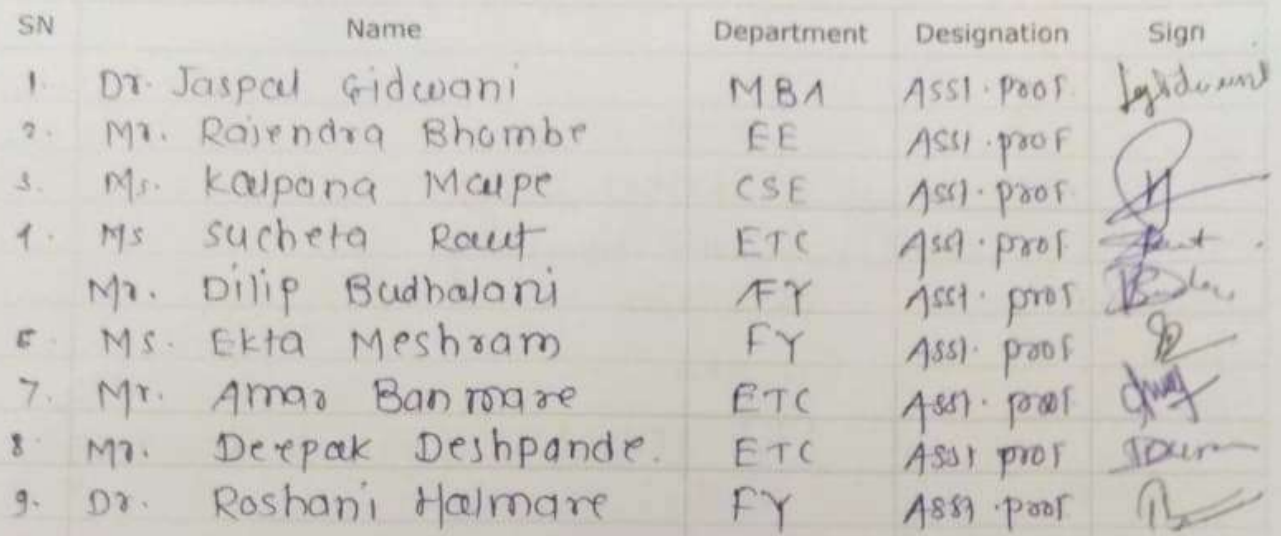 SN Name Department Designation Sign
1. Dr. Jaspal Gidwani MBA Asst. prof.
2. Mr. Rajendra Bhombe EE Asst. prof
3. Ms. Kalpana Malpe CSE Asst. prof.
4. Ms Sucheta Raut ETC Asst. prof.
Mr. Dilip Budhalani FY Asst. prof
6. Ms. Ekta Meshram FY Asst. prof
7. Mr. Amar Banmare ETC Asst. prof
8 Mr. Deepak Deshpande. ETC Asst prof
9. Dr. Roshani Halmare FY Asst. prof